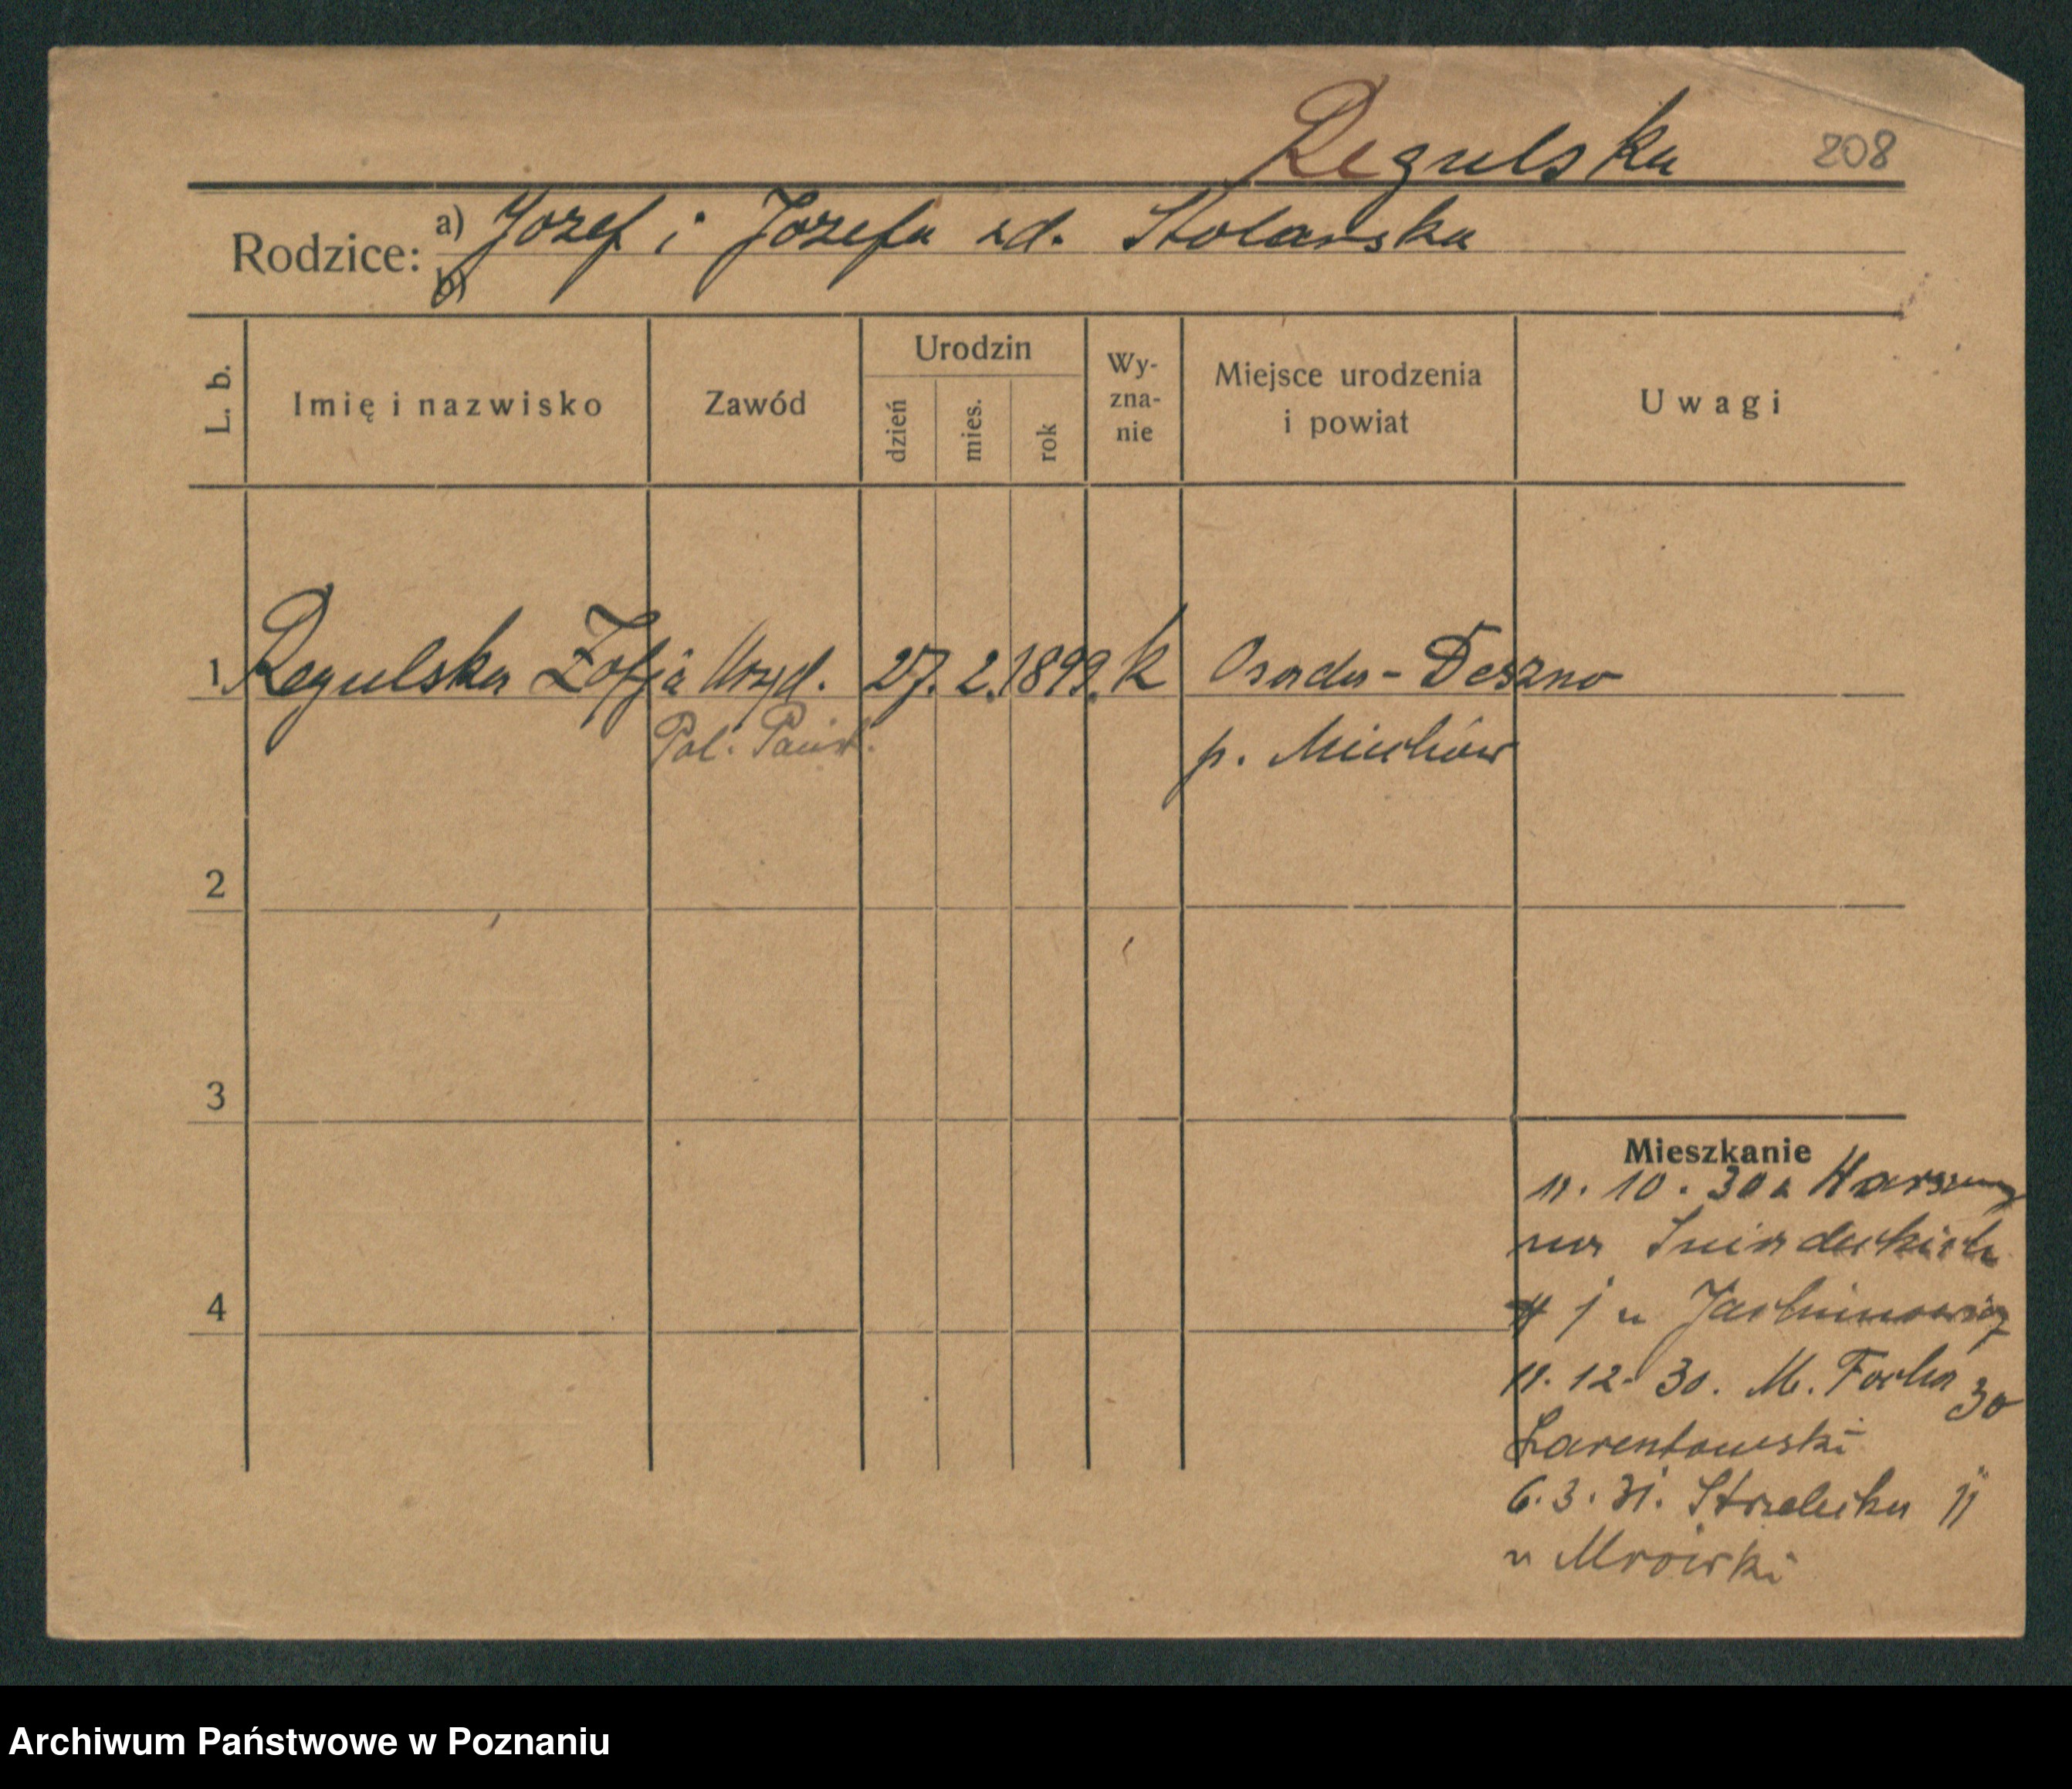 Regulska 208
Rodzice: a) Józef i Józefa zd. Stolarska
b)
L. b. Imię i nazwisko Zawód Urodzin dzień mies. rok Wy-zna-nie Miejsce urodzenia i powiat Uwagi
1 Regulska Zofja Urzęd. 27. 2. 1899. k Osada-Deszno
Pol. Państ. p. Miechów
2
3
4
Mieszkanie
11. 10. 30 z Warszawy
Śniadeckich
u
11. 12. 30. M. Focha 30
Larentowski
6. 3. 31. Strzelecka 11
u Mrówki
Archiwum Państwowe w Poznaniu